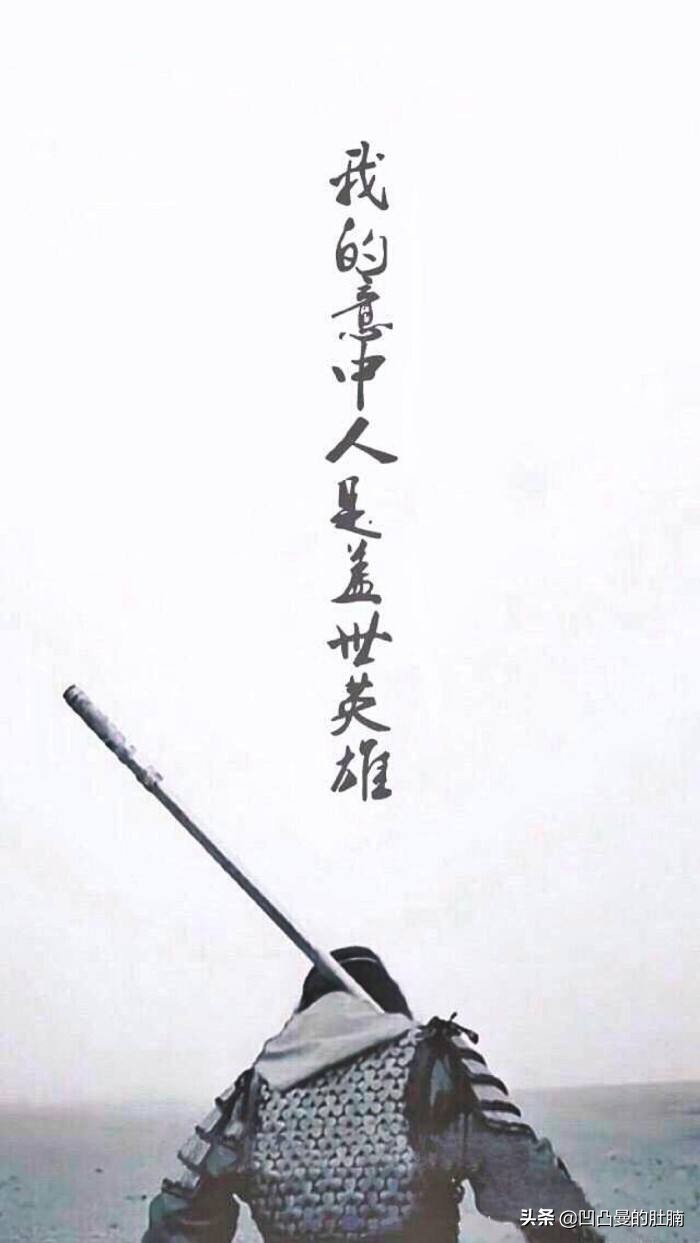 我的意中人是盖世英雄
头条 @凹凸曼的肚腩